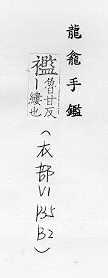 龍龕手鑑
襤魯甘反｜縷也(衣部V1 P35 B2)